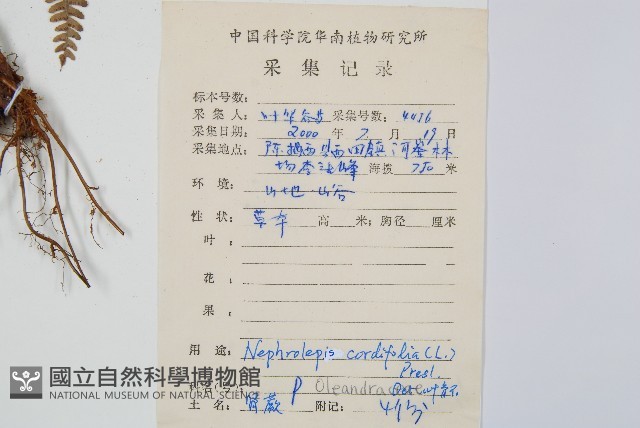 中国科学院华南植物研究所
采集记录
标本号数:
采集人: 叶华谷 采集号数: 4416
采集日期: 2000 年 7 月 19 日
采集地点: 田镇河 林
场 峰 海拔 780 米
环境: 山地 山谷
性状: 草本 高 米; 胸径 厘米
叶:
花:
果:
用途: Nephrolepis cordifolia (L.)
Presl.
P Oleandraceae
土名: 肾蕨 附记:
國立自然科學博物館
NATIONAL MUSEUM OF NATURAL SCIENCE